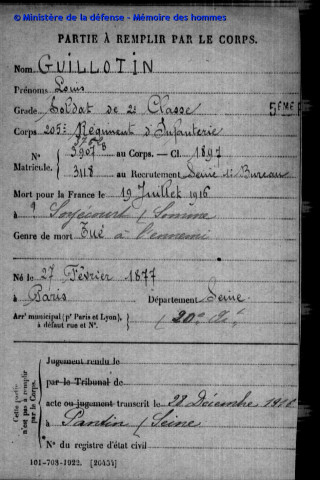 © Ministère de la défense - Mémoire des hommes
PARTIE À REMPLIR PAR LE CORPS.
Nom GUILLOTIN
Prénoms Louis
Grade Soldat de 2e Classe
5EME
Corps 205e Régiment d'Infanterie
N° 5907 au Corps. — Cl. 1897
Matricule. 3118 au Recrutement Seine 4e Bureau
Mort pour la France le 19 Juillet 1916
à Soyécourt (Somme
Genre de mort Tué à l'ennemi
Né le 27 Février 1877
à Paris Département Seine
Arrt municipal (pr Paris et Lyon), à défaut rue et N°. (20e At
Cette partie n'est pas à remplir par le Corps.
Jugement rendu le
par le Tribunal de
acte ou jugement transcrit le 28 Décembre
à Pantin (Seine
N° du registre d'état civil
101-708-1922. [26434]